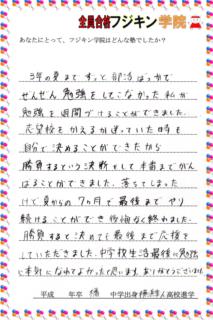 全員合格フジキン学院
あなたにとって、フジキン学院はどんな塾でしたか?
3年の夏まですっと部活ばっかで
ぜんぜん勉強をしてこなかった私が
勉強を週間づけることができました。
志望校をかえるか迷っていた時も
自分で決めることができたから
勝負するという決断をして本番までがん
ばることができました。落ちてしまった
けど夏からの7ヵ月で最後までやり
続けることができ後悔なく終われました。
勝負すると決めても最後まで応援を
していただきました。中学校生活最後に
本気になれてよかったと思います。ありがとうございました
平成 年卒 橘 中学出身 高校進学